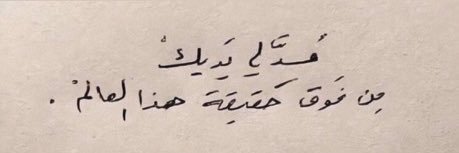 مُدَّ لي يَدَيكْ
مِن فَوق حَقيقة هذا العالمْ .